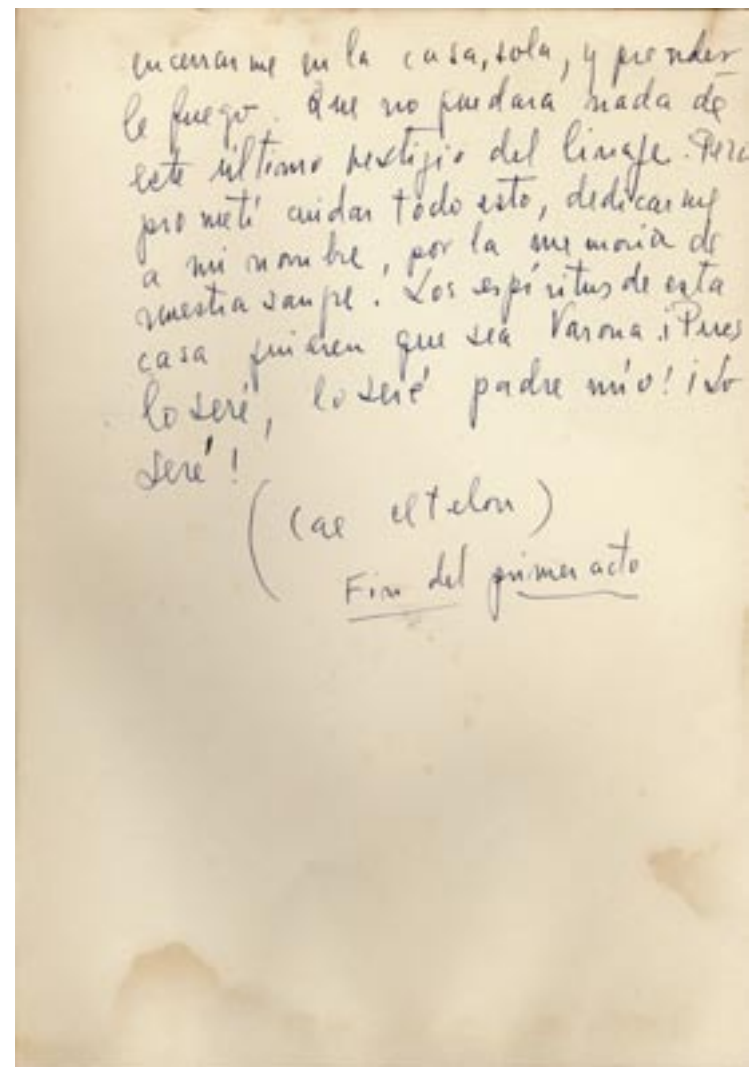 encerrarme en la casa, sola, y prender
le fuego. Que no quedara nada de
este último vestigio del linaje. Pero
prometí cuidar todo esto, dedicarme
a mi nombre, por la memoria de
nuestra sangre. Los espíritus de esta
casa quieren que sea Varona. ¡Pues
lo seré, lo seré padre mío! ¡Lo
seré!
(Cae el telon)
Fin del primer acto